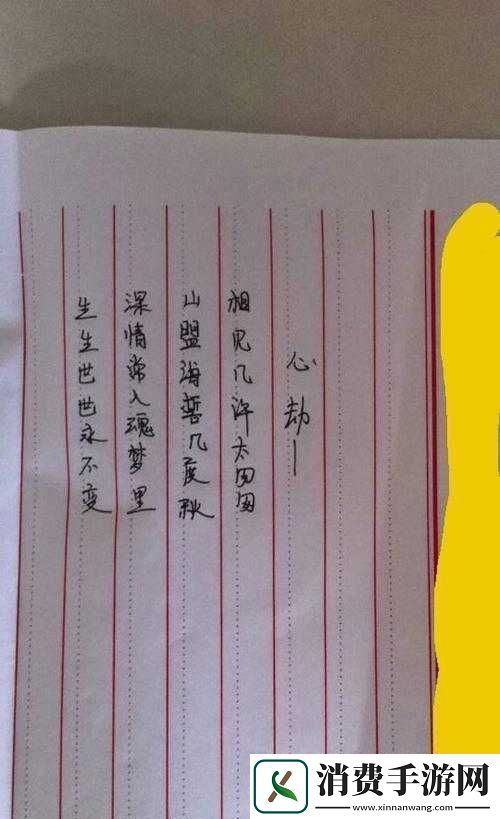 心劫一
相见几许太匆匆
山盟海誓几度秋
深情常入魂梦里
生生世世永不变
消费手游网
www.xinnanwang.com